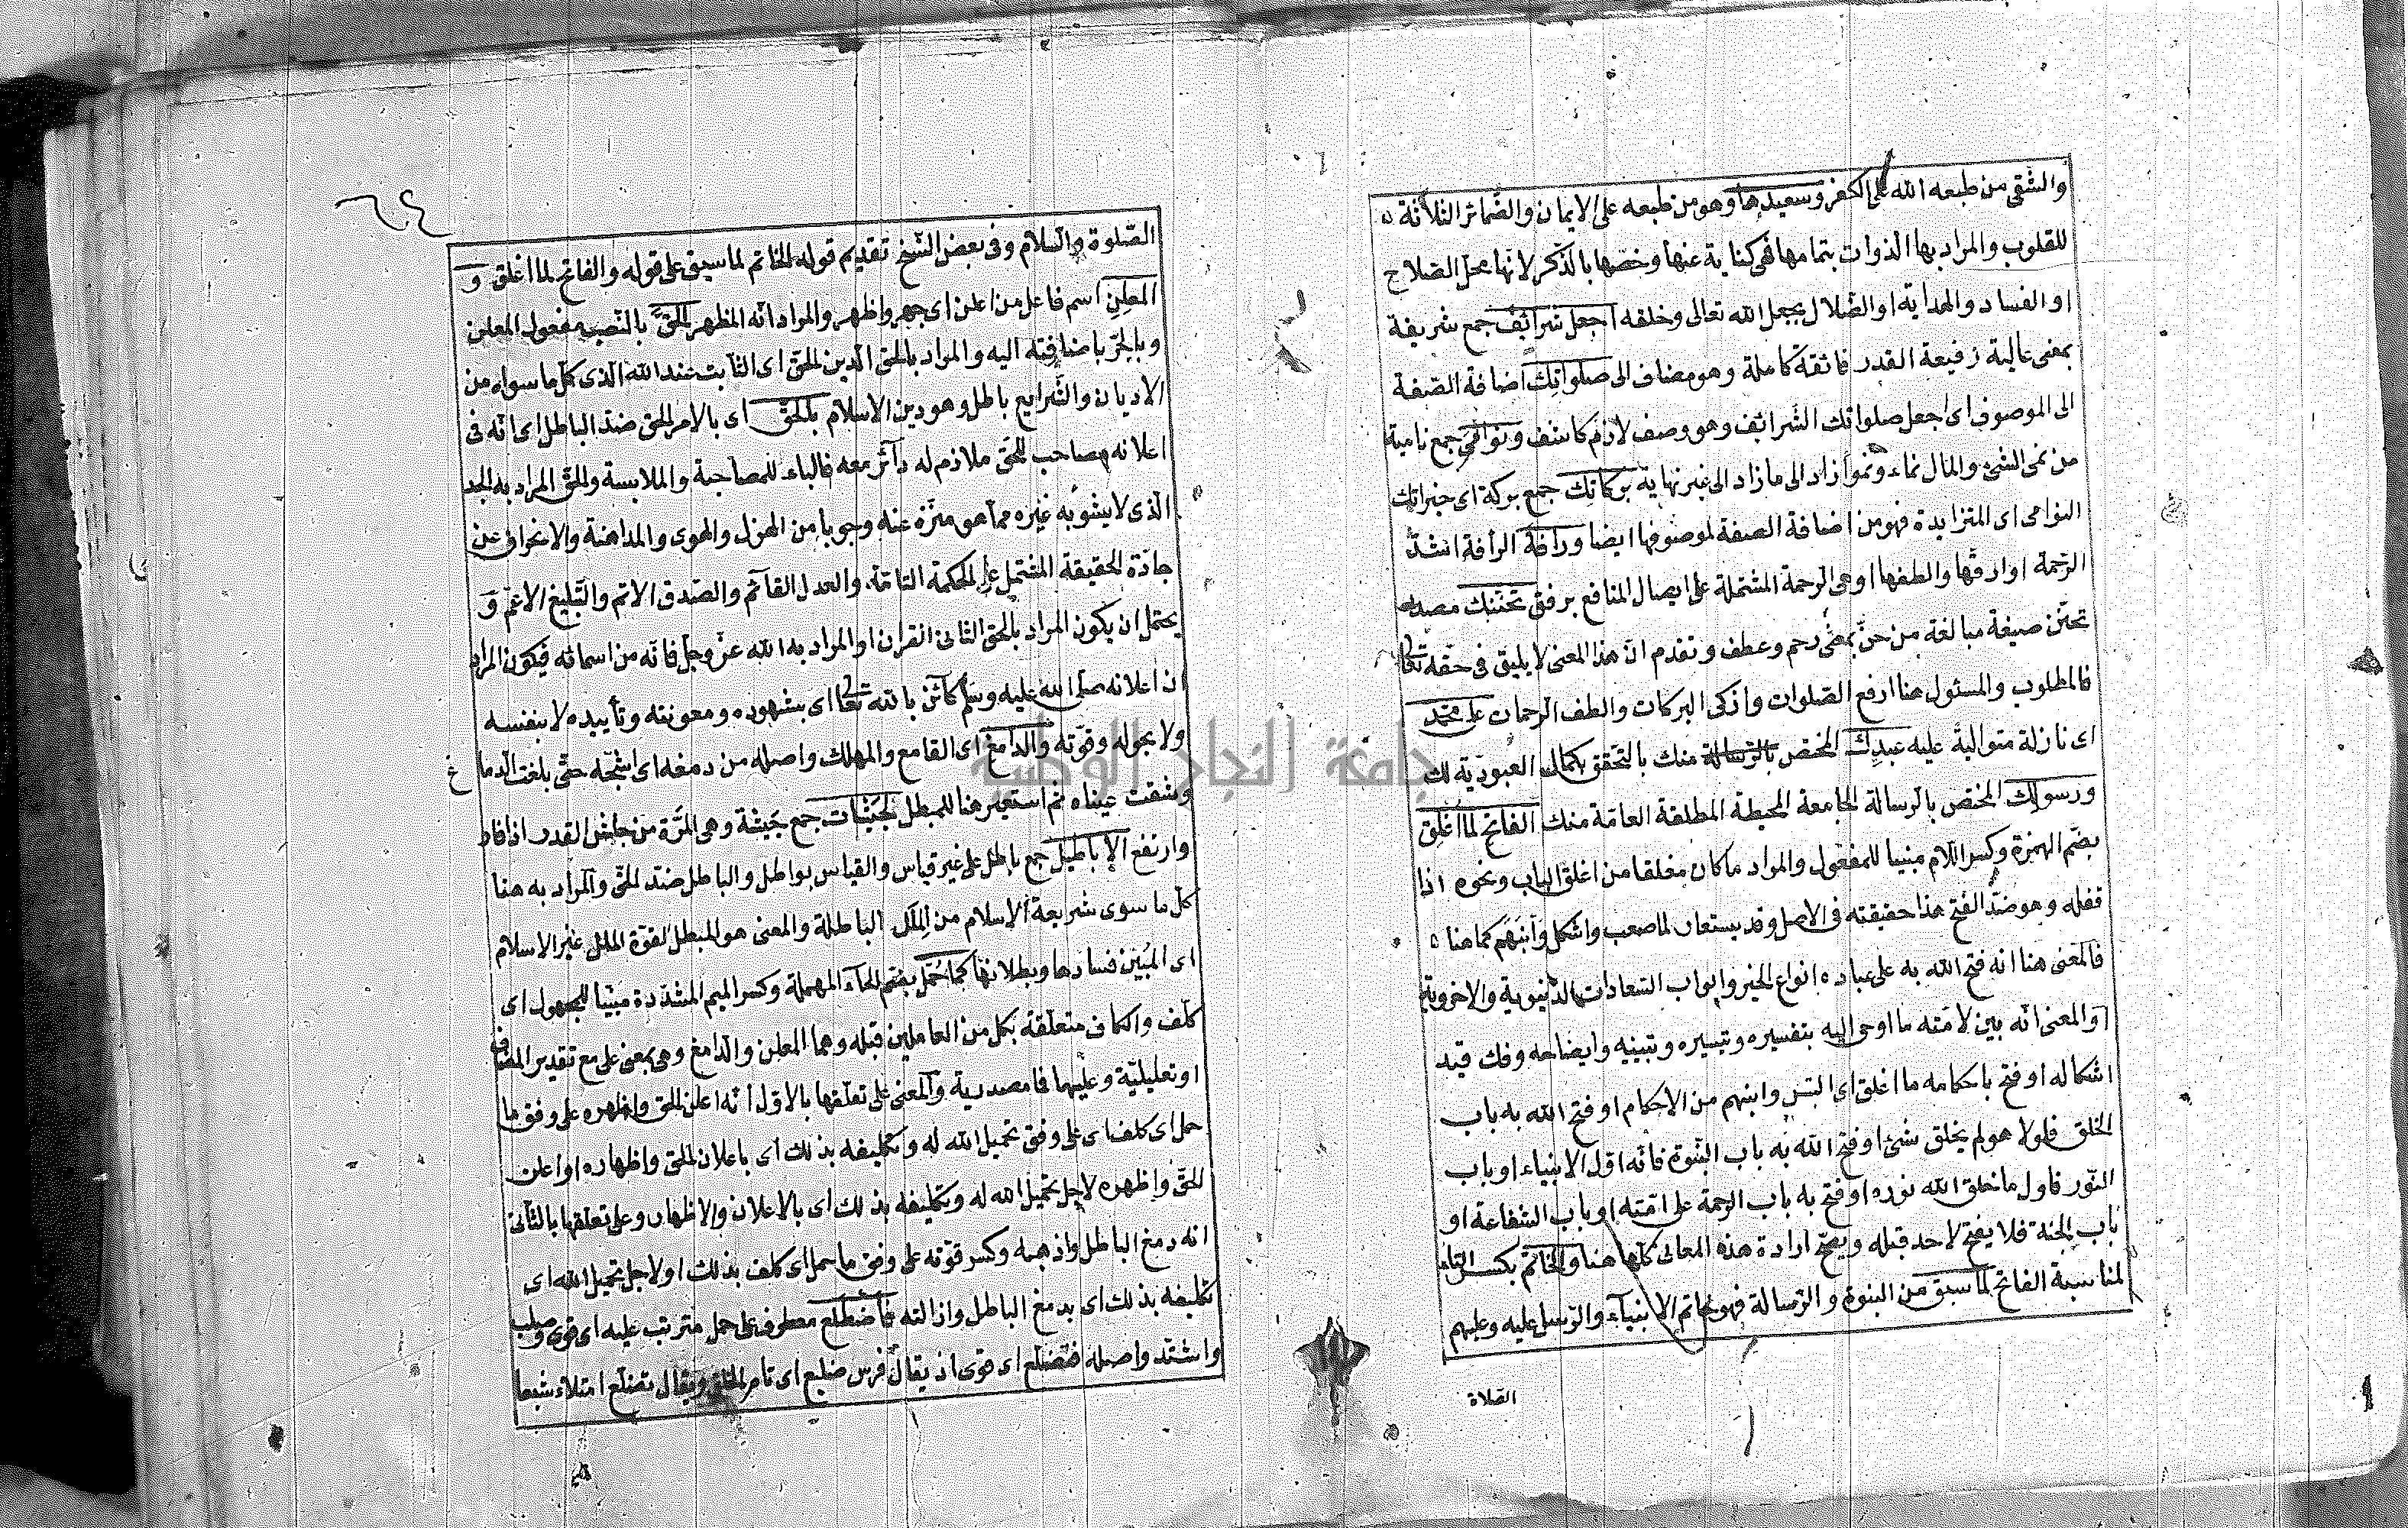 والشقى من طبعه الله على الكفر وسعيدها وهو من طبعه على الايمان والضمائر الثلاثة
للقلوب والمراد بها الذوات بتمامها فهى كناية عنها وخصها بالذكر لانها محل الصلاح
او الفساد والهداية او الضلال بجعل الله تعالى وخلقه اجعل شرائف جمع شريفة
بمعنى عالية رفيعة القدر فائقة كاملة وهو مضاف الى صلواتك اضافة الصفة
الى الموصوف اى اجعل صلواتك الشرائف وهو وصف لازم كاشف ونوامى جمع نامية
من نمى الشئ والمال نماء ونموا زاد الى ما زاد الى غير نهاية بركاتك جمع بركة اى خيراتك
النوامى اى المتزايدة فهو من اضافة الصفة لموصوفها ايضا ورأفة الرأفة اشد
الرحمة او ارقها والطفها او هى الرحمة المشتملة على ايصال المنافع برفق تحننك مصدر
تحنن صيغة مبالغة من حن بمعنى رحم وعطف وتقدم ان هذا المعنى لا يليق فى حقه تعالى
فالمطلوب والمسئول هنا ارفع الصلوات وازكى البركات والطف الرحمات على محمد
اى نازلة متوالية عليه عبدك المختص بالرسالة منك بالتحقق بكمال العبودية لك
ورسولك المختص بالرسالة الجامعة المحيطة المطلقة العامة منك الفاتح لما اغلق
بضم الهمزة وكسر اللام مبنيا للمفعول والمراد ما كان مغلقا من اغلق الباب ونحوه اذا
قفله وهو ضد الفتح هذا حقيقته فى الاصل وقد يستعار لما صعب واشكل وانبهم كما هنا
فالمعنى هنا انه فتح الله به على عباده انواع الخير وابواب السعادات الدنيوية والاخروية
او المعنى انه بين لامته ما اوحى اليه بتفسيره وتيسيره وتبيينه وايضاحه وفك قيد
اشكاله او فتح باحكامه ما اغلق اى التبس وانبهم من الاحكام او فتح الله به باب
الخلق فلولا هو لم يخلق شئ او فتح الله به باب النبوة فانه اول الانبياء او باب
النور فاول ما خلق الله نوره او فتح به باب الرحمة على امته او باب الشفاعة او
باب الجنة فلا يفتح لاحد قبله ويصح ارادة هذه المعانى كلها هنا والخاتم بكسر التاء
لمناسبة الفاتح لما سبق من النبوة والرسالة فهو خاتم الانبياء والرسل عليه وعليهم
الصلاة
الصلوة والسلام وفى بعض النسخ تقديم قوله الخاتم لما سبق على قوله والفاتح لما اغلق و
المعلن اسم فاعل من اعلن اى جهر واظهر والمراد انه المظهر الحق بالنصب مفعول المعلن
وبالجر باضافته اليه والمراد بالحق الدين الحق اى الثابت عند الله الذى كل ما سواه من
الاديان والشرايع باطل وهو دين الاسلام بالحق اى بالامر الحق ضد الباطل اى انه فى
اعلانه مصاحب للحق ملازم له دآئر معه فالباء للمصاحبة والملابسة والحق المراد به الجد
الذى لا يشوبه غيره مما هو منزه عنه وجوبا من الهزل والهوى والمداهنة والانحراف عن
جادة الحقيقة المشتمل على الحكمة التامة والعدل القآئم والصدق الاتم والتبليغ الاعم و
يحتمل ان يكون المراد بالحق الثانى القران او المراد به الله عز وجل فانه من اسمائه فيكون المراد
ان اعلانه صلى الله عليه وسلم كائن بالله تعالى اى بشهوده ومعونته وتأييده لا بنفسه
ولا بحوله وقوته والدامغ اى القامع والمهلك واصله من دمغه اى اشجه حتى بلغت الدماغ
وشقت عيناه ثم استعير هنا للمبطل لجيشات جمع جيشة وهى المرة من جاش القدر اذا فار
وارتفع الاباطيل جمع باطل على غير قياس والقياس بواطل والباطل ضد الحق والمراد به هنا
كل ما سوى شريعة الاسلام من الملل الباطلة والمعنى هو المبطل لقوة الملل غير الاسلام
اى المبين فسادها وبطلانها كما حمل بضم الحآء المهملة وكسر الميم المشددة مبنيا للمجهول اى
كلف والكاف متعلقة بكل من العاملين قبله وهما المعلن والدامغ وهى بمعنى على مع تقدير المضاف
او تعليلية وعليهما فما مصدرية والمعنى على تعلقها بالاول انه اعلن الحق واظهره على وفق ما
حمل اى كلف اى على وفق تحميل الله له وتكليفه بذلك اى باعلان الحق واظهاره او اعلن
الحق واظهره لاجل تحميل الله له وتكليفه بذلك اى بالاعلان والاظهار وعلى تعلقها بالثانى
انه دمغ الباطل واذهبه وكسر قوته على وفق ما حمل اى كلف بذلك او لاجل تحميل الله اى
تكليفه بذلك اى بدمغ الباطل وازالته فاضطلع معطوف على حمل مترتب عليه اى قوى وصلب
واشتد واصله اى قوى اذ يقال فرس ضليع اى تام الخلق ويقال تضلع امتلاء شبعا
جامعة النجاح الوطنية